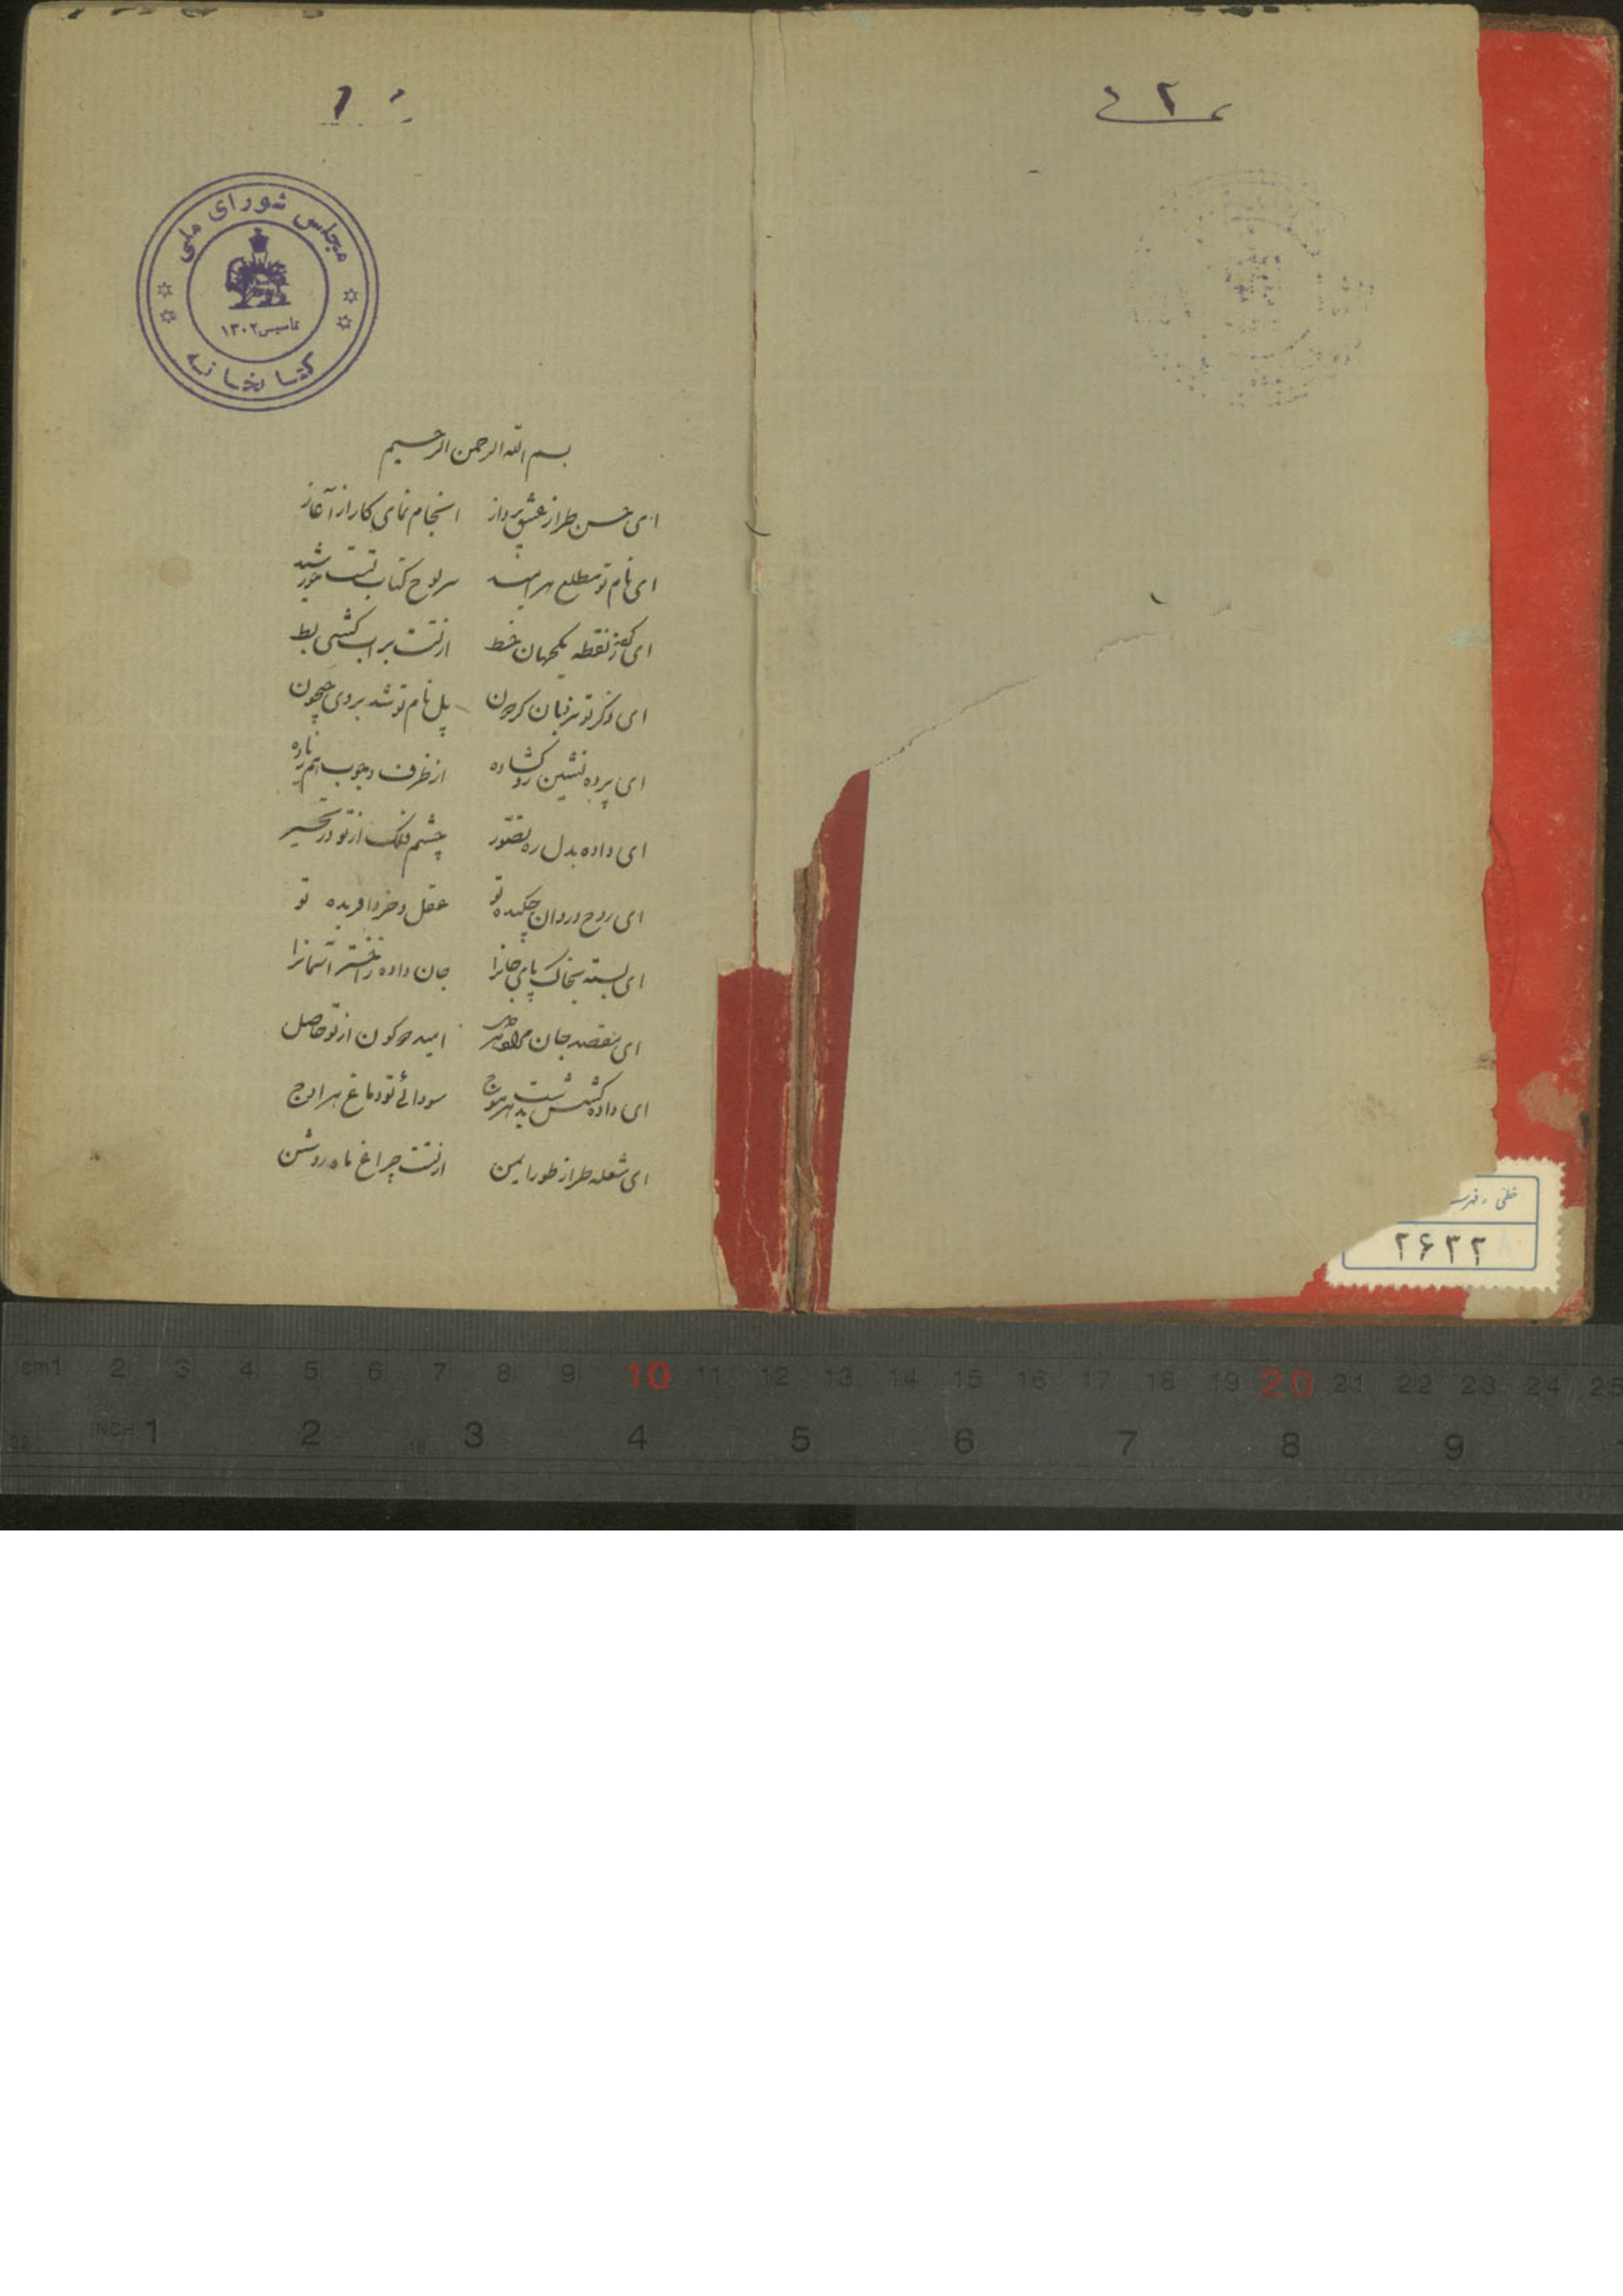 ۲
۱
مجلس شورای ملی
تاسیس ۱۳۰۲
کتابخانه
بسم الله الرحمن الرحیم
ای حسن طراز عشق پرداز انجام نمای کار از آغاز
ای نام تو مطلع هر امید سر لوح کتاب تست خورشید
ای نقطه یکجهان خط از تست بر آب کشتی بط
ای ذکر تو بر زبان پل نام تو شد بروی جیحون
ای پرده نشین رو گشاده از ظرف وجوب هم زیاده
ای داده بدل ره تصور چشم فلک از تو در تحیر
ای روح و روان چکیده تو عقل و خرد آفریده تو
ای بسته بخاک پای جانرا جان داده ز اختر آسمانرا
ای مقصد جان مراد هر دل امید دو کون از تو حاصل
ای داده کشش بهر موج سودائے تو دماغ هر اوج
ای شعله طراز طور ایمن از تست چراغ ماه روشن
خطی فهرست
۲۶۳۲
cm1 2 3 4 5 6 7 8 9 10 11 12 13 14 15 16 17 18 19 20 21 22 23 24 25
INCH 1 2 3 4 5 6 7 8 9